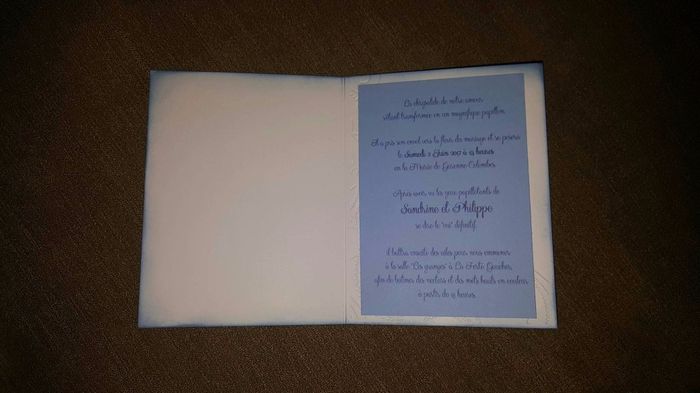 La chrysalide de notre amour
s'étant transformée en un magnifique papillon,
Il a pris son envol vers la fleur du mariage et se posera
le Samedi 3 Juin 2017 à 15 heures
en la Mairie de Garenne-Colombes.
Après avoir vu les yeux papillotants de
Sandrine et Philippe
se dire le "oui" définitif,
il battra ensuite des ailes pour vous emmener
à la salle "Les granges" à La Ferté Gaucher,
afin de butiner des nectars et des mets hauts en couleurs
à partir de heures.